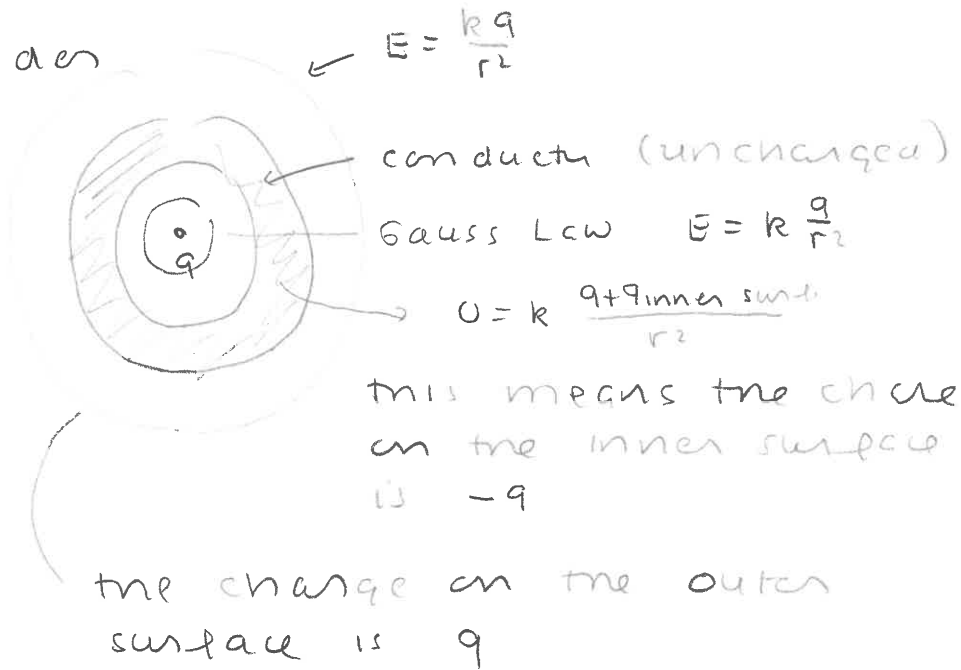 E = kq/r²
conductr (uncharged)
q
Gauss Law E = k q/r²
0 = k q+qinner surf./r²
this means the
on the inner surface
is -q
the charge on the outer
surface is q